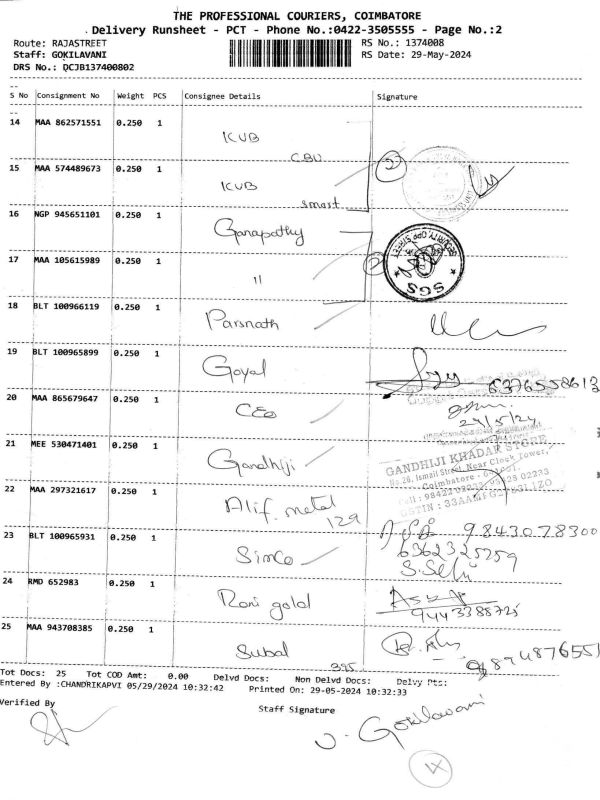 THE PROFESSIONAL COURIERS, COIMBATORE
Delivery Runsheet - PCT - Phone No.:0422-3505555 - Page No.:2
Route: RAJASTREET RS No.: 1374008
Staff: GOKILAVANI RS Date: 29-May-2024
DRS No.: DCJB137400802
S No Consignment No Weight PCS Consignee Details Signature
14 MAA 862571551 0.250 1
KUB
CBU
15 MAA 574489673 0.250 1
KUB
smart
16 NGP 945651101 0.250 1
Ganapathy
17 MAA 105615989 0.250 1
"
SGS
18 BLT 100966119 0.250 1
Parsnath
19 BLT 100965899 0.250 1
Goyal
6376558613
20 MAA 865679647 0.250 1
CEO
29/5/24
21 MEE 530471401 0.250 1
Gandhiji
GANDHIJI KHADAR STORE
No.26, Ismail Street, Near Clock Tower,
Coimbatore - 641001.
22 MAA 297321617 0.250 1
Alif. metal
129
23 BLT 100965931 0.250 1
9843078300
6362325259
Simco
S.Selvi
24 RMD 652983 0.250 1
Rani gold
9443388725
25 MAA 943708385 0.250 1
Subal
395
Tot Docs: 25 Tot COD Amt: 0.00 Delvd Docs: Non Delvd Docs: Delvy Pts:
Entered By :CHANDRIKAPVI 05/29/2024 10:32:42 Printed On: 29-05-2024 10:32:33
Verified By Staff Signature
J. Gokilavani